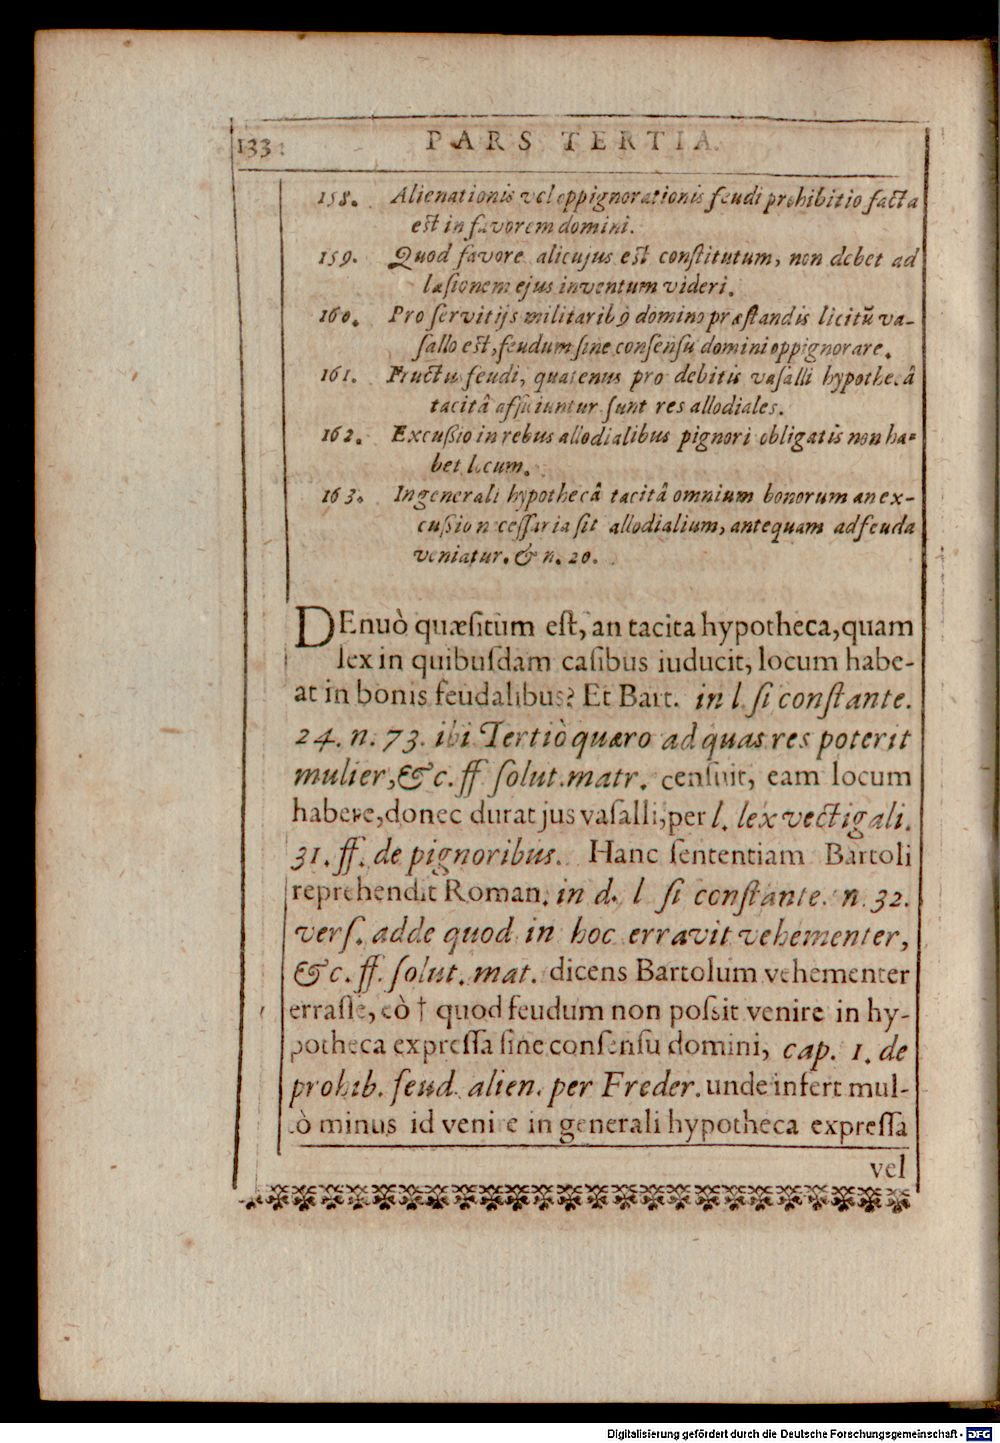 133
PARS TERTIA.
158. Alienationis vel oppignorationis feudi prohibitio facta
est in favorem domini.
159. Quod favore alicujus est conſtitutum, non debet ad
læſionem ejus inventum videri.
160. Pro ſervitijs militarib9 domino præſtandis licitũ va-
ſallo eſt, feudum ſine conſenſu domini oppignorare.
161. Fructus feudi, quatenus pro debitis vaſalli hypothecâ
tacitâ afficiuntur ſunt res allodiales.
162. Excuſſio in rebus allodialibus pignori obligatis non ha-
bet locum.
163. In generali hypothecâ tacitâ omnium bonorum an ex-
cuſſio neceſſaria ſit allodialium, antequam ad feuda
veniatur. & n. 20.
DEnuò quæſitum eſt, an tacita hypotheca, quam
lex in quibuſdam caſibus iuducit, locum habe-
at in bonis feudalibus? Et Bart. in l. ſi conſtante.
24. n. 73. ibi Tertiò quæro ad quas res poterit
mulier, &c. ff ſolut. matr. cenſuit, eam locum
habere, donec durat jus vaſalli, per l. lex vectigali.
31. ff. de pignoribus. Hanc ſententiam Bartoli
reprehendit Roman. in d. l ſi conſtante. n. 32.
verſ. adde quod in hoc erravit vehementer,
&c. ff. ſolut. mat. dicens Bartolum vehementer
erraſſe, eò † quod feudum non poſſit venire in hy-
potheca expreſſa ſine conſenſu domini, cap. 1. de
prohib. feud. alien. per Freder. unde infert mul-
tò minus id venire in generali hypotheca expreſſa
vel
Digitalisierung gefördert durch die Deutsche Forschungsgemeinschaft - DFG